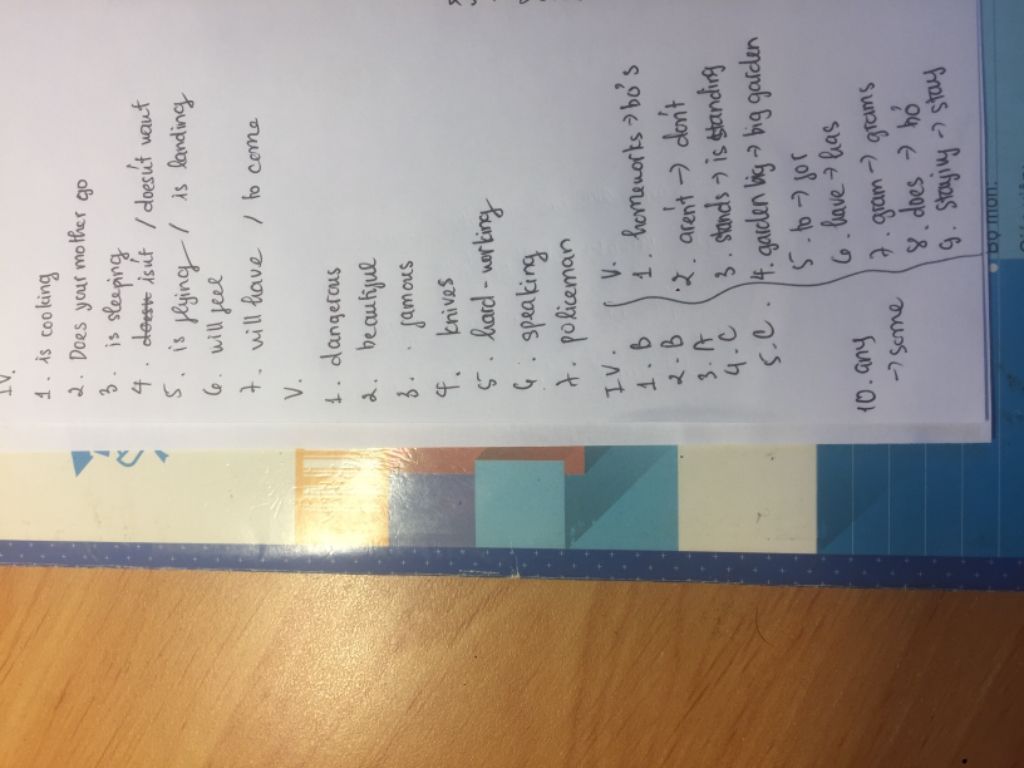 IV.
1. is cooking
2. Does your mother go
3. is sleeping
4. isn't / doesn't want
5. is flying / is landing
6. will feel
7. will have / to come
V.
1. dangerous
2. beautiful
3. famous
4. knives
5. hard-working
6. speaking
7. policeman
IV.
1. B
2. B
3. A
4. C
5. C
V.
1. homeworks → bỏ s
2. aren't → don't
3. stands → is standing
4. garden big → big garden
5. to → for
6. have → has
7. gram → grams
8. does → bỏ
9. staying → stay
10. any
→ some